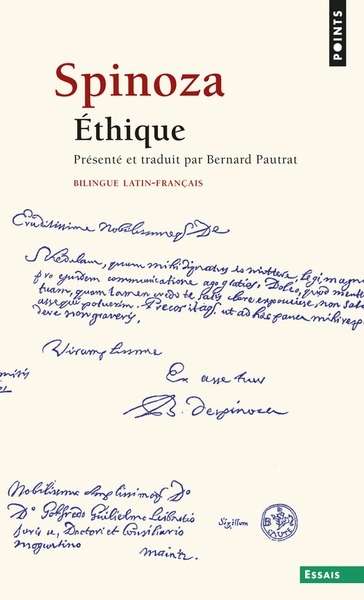 POINTS
Spinoza
Éthique
Présenté et traduit par Bernard Pautrat
BILINGUE LATIN-FRANÇAIS
Eruditissime Nobilissimeq De
quam mihi dignatus es mittere, legi, magna
pro ejusdem communicatione ago gratias. Doleo, quod mente
tuam, quam tamen credo te satis clare exposuisse, non sat
assequi potuerim. Precor itaq ut ad pauca mihi resp
dere non graveris.
Ex asse tuus
B. despinoza
Nobilissimo Amplissimoq Do
Do Gotfredo Guilielmo Leibnitio
Juris u. Doctori et Consiliario
Sigillum
moguntino
maintz.
ESSAIS